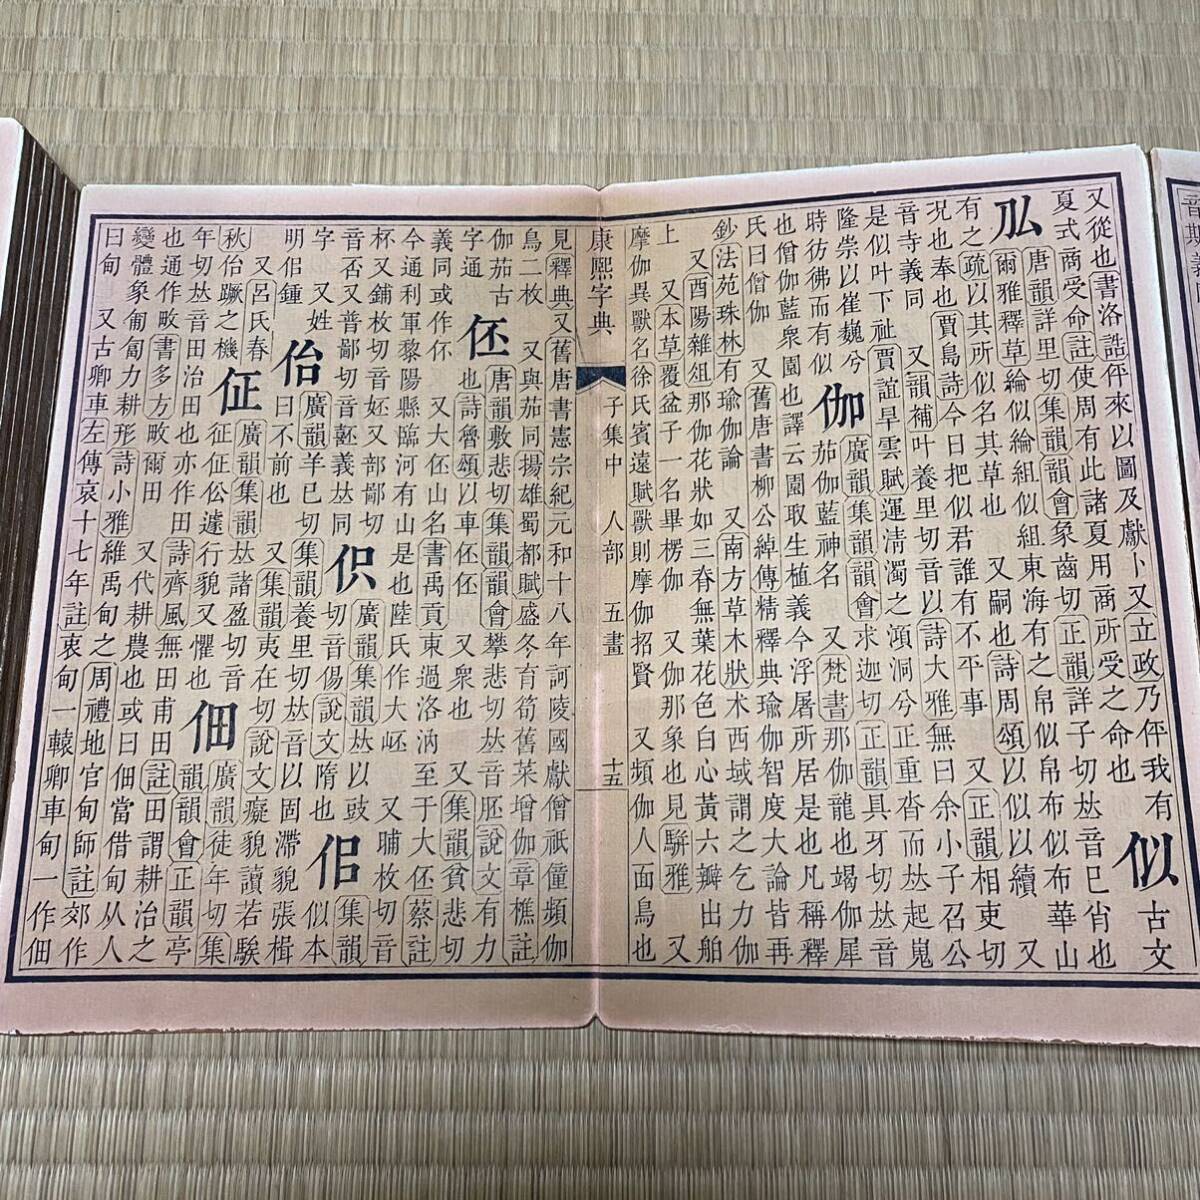 又從也書洛誥伻來以圖及獻卜又立政乃伻我有
夏式商受命註使周有此諸夏用商所受之命也
似
古文
㠯
唐韻詳里切集韻韻會象齒切正韻詳子切𠀤音巳肖也
爾雅釋草綸似綸組似組東海有之帛似帛布似布華山
有之疏以其所似名其草也 又嗣也詩周頌以似以續 又
況也奉也賈島詩今日把似君誰有不平事 又正韻相吏切
音寺義同 又韻補叶養里切音以詩大雅無曰余小子召公
是似叶下祉賈誼旱雲賦運淸濁之澒洞兮正重沓而𠀤起嵬
隆崇以崔巍兮
時彷彿而有似
伽
廣韻集韻韻會求迦切正韻具牙切𠀤音
茄伽藍神名 又梵書那伽龍也竭伽犀
也僧伽藍衆園也譯云園取生植義今浮屠所居是也凡稱釋
氏曰僧伽 又舊唐書柳公綽傳精釋典瑜伽智度大論皆再
鈔法苑珠林有瑜伽論 又南方草木狀朮西域謂之乞力伽
又酉陽雜俎那伽花狀如三春無葉花色白心黃六瓣出舶
上 又本草覆盆子一名畢楞伽 又伽那象也見騈雅 又
摩伽異獸名徐氏賓遠賦獸則摩伽招賢 又頻伽人面鳥也
康熙字典
子集中 人部 五畫
十五
見釋典又舊唐書憲宗紀元和十八年訶陵國獻僧祇僮頻伽
鳥二枚 又與茄同揚雄蜀都賦盛冬育筍舊菜增伽章樵註
伽茄古
字通
伾
唐韻敷悲切集韻韻會攀悲切𠀤音胚說文有力
也詩魯頌以車伾伾 又衆也 又集韻貧悲切
義同或作伓 又大伾山名書禹貢東過洛汭至于大伾蔡註
今通利軍黎陽縣臨河有山是也陸氏作大岯 又晡枚切音
杯又鋪枚切音妚又部鄙切
音否又普鄙切音嚭義𠀤同
伿
廣韻集韻𠀤以豉
切音傷說文隋也
佀
集韻
似本
字 又姓
明佀鍾
佁
廣韻羊已切集韻養里切𠀤音以固滯貌張楫
曰不前也 又集韻夷在切說文癡貌讀若騃
又呂氏春
秋佁蹶之機
佂
廣韻集韻𠀤諸盈切音
征佂伀遽行貌又懼也
佃
廣韻徒年切集
韻韻會正韻亭
年切𠀤音田治田也亦作田詩齊風無田甫田註田謂耕治之
也通作畋書多方畋爾田 又代耕農也或曰佃當借甸从人
變體象匍匐力耕形詩小雅維禹甸之周禮地官甸師註郊作
曰甸 又古卿車左傳哀十七年註衷甸一轅卿車甸一作佃